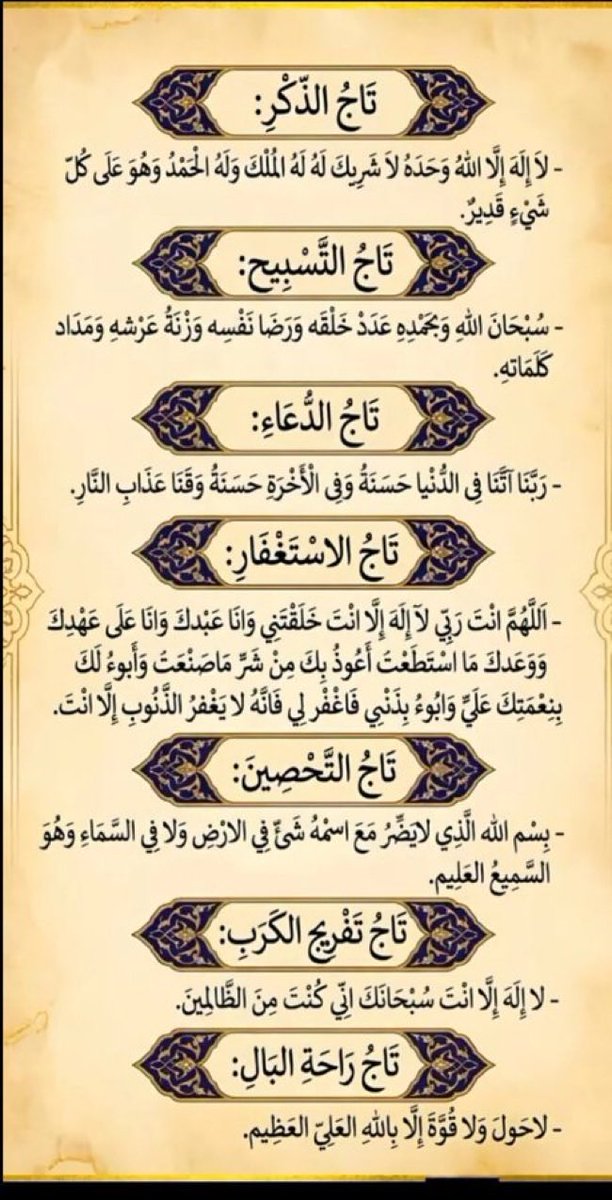 تَاجُ الذِّكْرِ:
- لاَ إِلَهَ إِلَّا اللهُ وَحَدَهُ لاَ شَرِيكَ لَهُ لَهُ المُلْكَ وَلَهُ الْحَمْدُ وَهُوَ عَلَى كُلّ
شَيْءٍ قَدِيرٌ.
تَاجُ التَّسْبِيح:
- سُبْحَانَ اللهِ وَبِحَمْدِهِ عَدَدْ خَلْقَه وَرَضَا نَفْسِه وَزْنَةُ عَرْشهِ وَمَدَاد
كَلَمَاتهِ.
تَاجُ الدُّعَاءِ:
- رَبَّنَا آتَّنَا فِى الدُّنْيا حَسَنَةُ وَفِى الْأَخْرَةِ حَسَنَةُ وَقَنَا عَذَابِ النَّارِ.
تَاجُ الاسْتَغْفَارِ:
- اَللَّهُمَّ انْتَ رَبِّي لآ إِلَهَ إِلَّا انْتَ خَلَقْتَنِي وَانَا عَبْدكَ وَانَا عَلَى عَهْدِكَ
وَوَعَدكَ مَا اسْتَطَعْتَ أَعُوذُ بِكَ مِنْ شَرَّ مَاصَنْعَتَ وَأَبوءُ لَكَ
بِنِعْمَتِكَ عَلَيٍّ وَابُوءُ بِذَنْبِي فَاغْفْر لِي فَانَّهُ لا يَغْفرُ الذَّنُوبِ إِلَّا انْتَ.
تَاجُ التَّحْصِينَ:
- بِسْم الله الَّذِي لايَضِّرُ مَعَ اسْمْهُ شَئٌ فِي الارْضِ وَلا فِي السَّمَاءِ وَهُوَ
السَّمِيعُ العَلِيم.
تَاجُ تَفْرِيج الكَرَبِ:
- لا إِلَهَ إِلَّا انْتَ سُبْحَانَكَ انِّي كُنْتَ مِنَ الظَّالِمِينَ.
تَاجُ رَاحَةِ البَالِ:
- لاحَولَ وَلا قُوَّةَ إِلَّا بِاللهِ العَلِيّ العَظِيم.